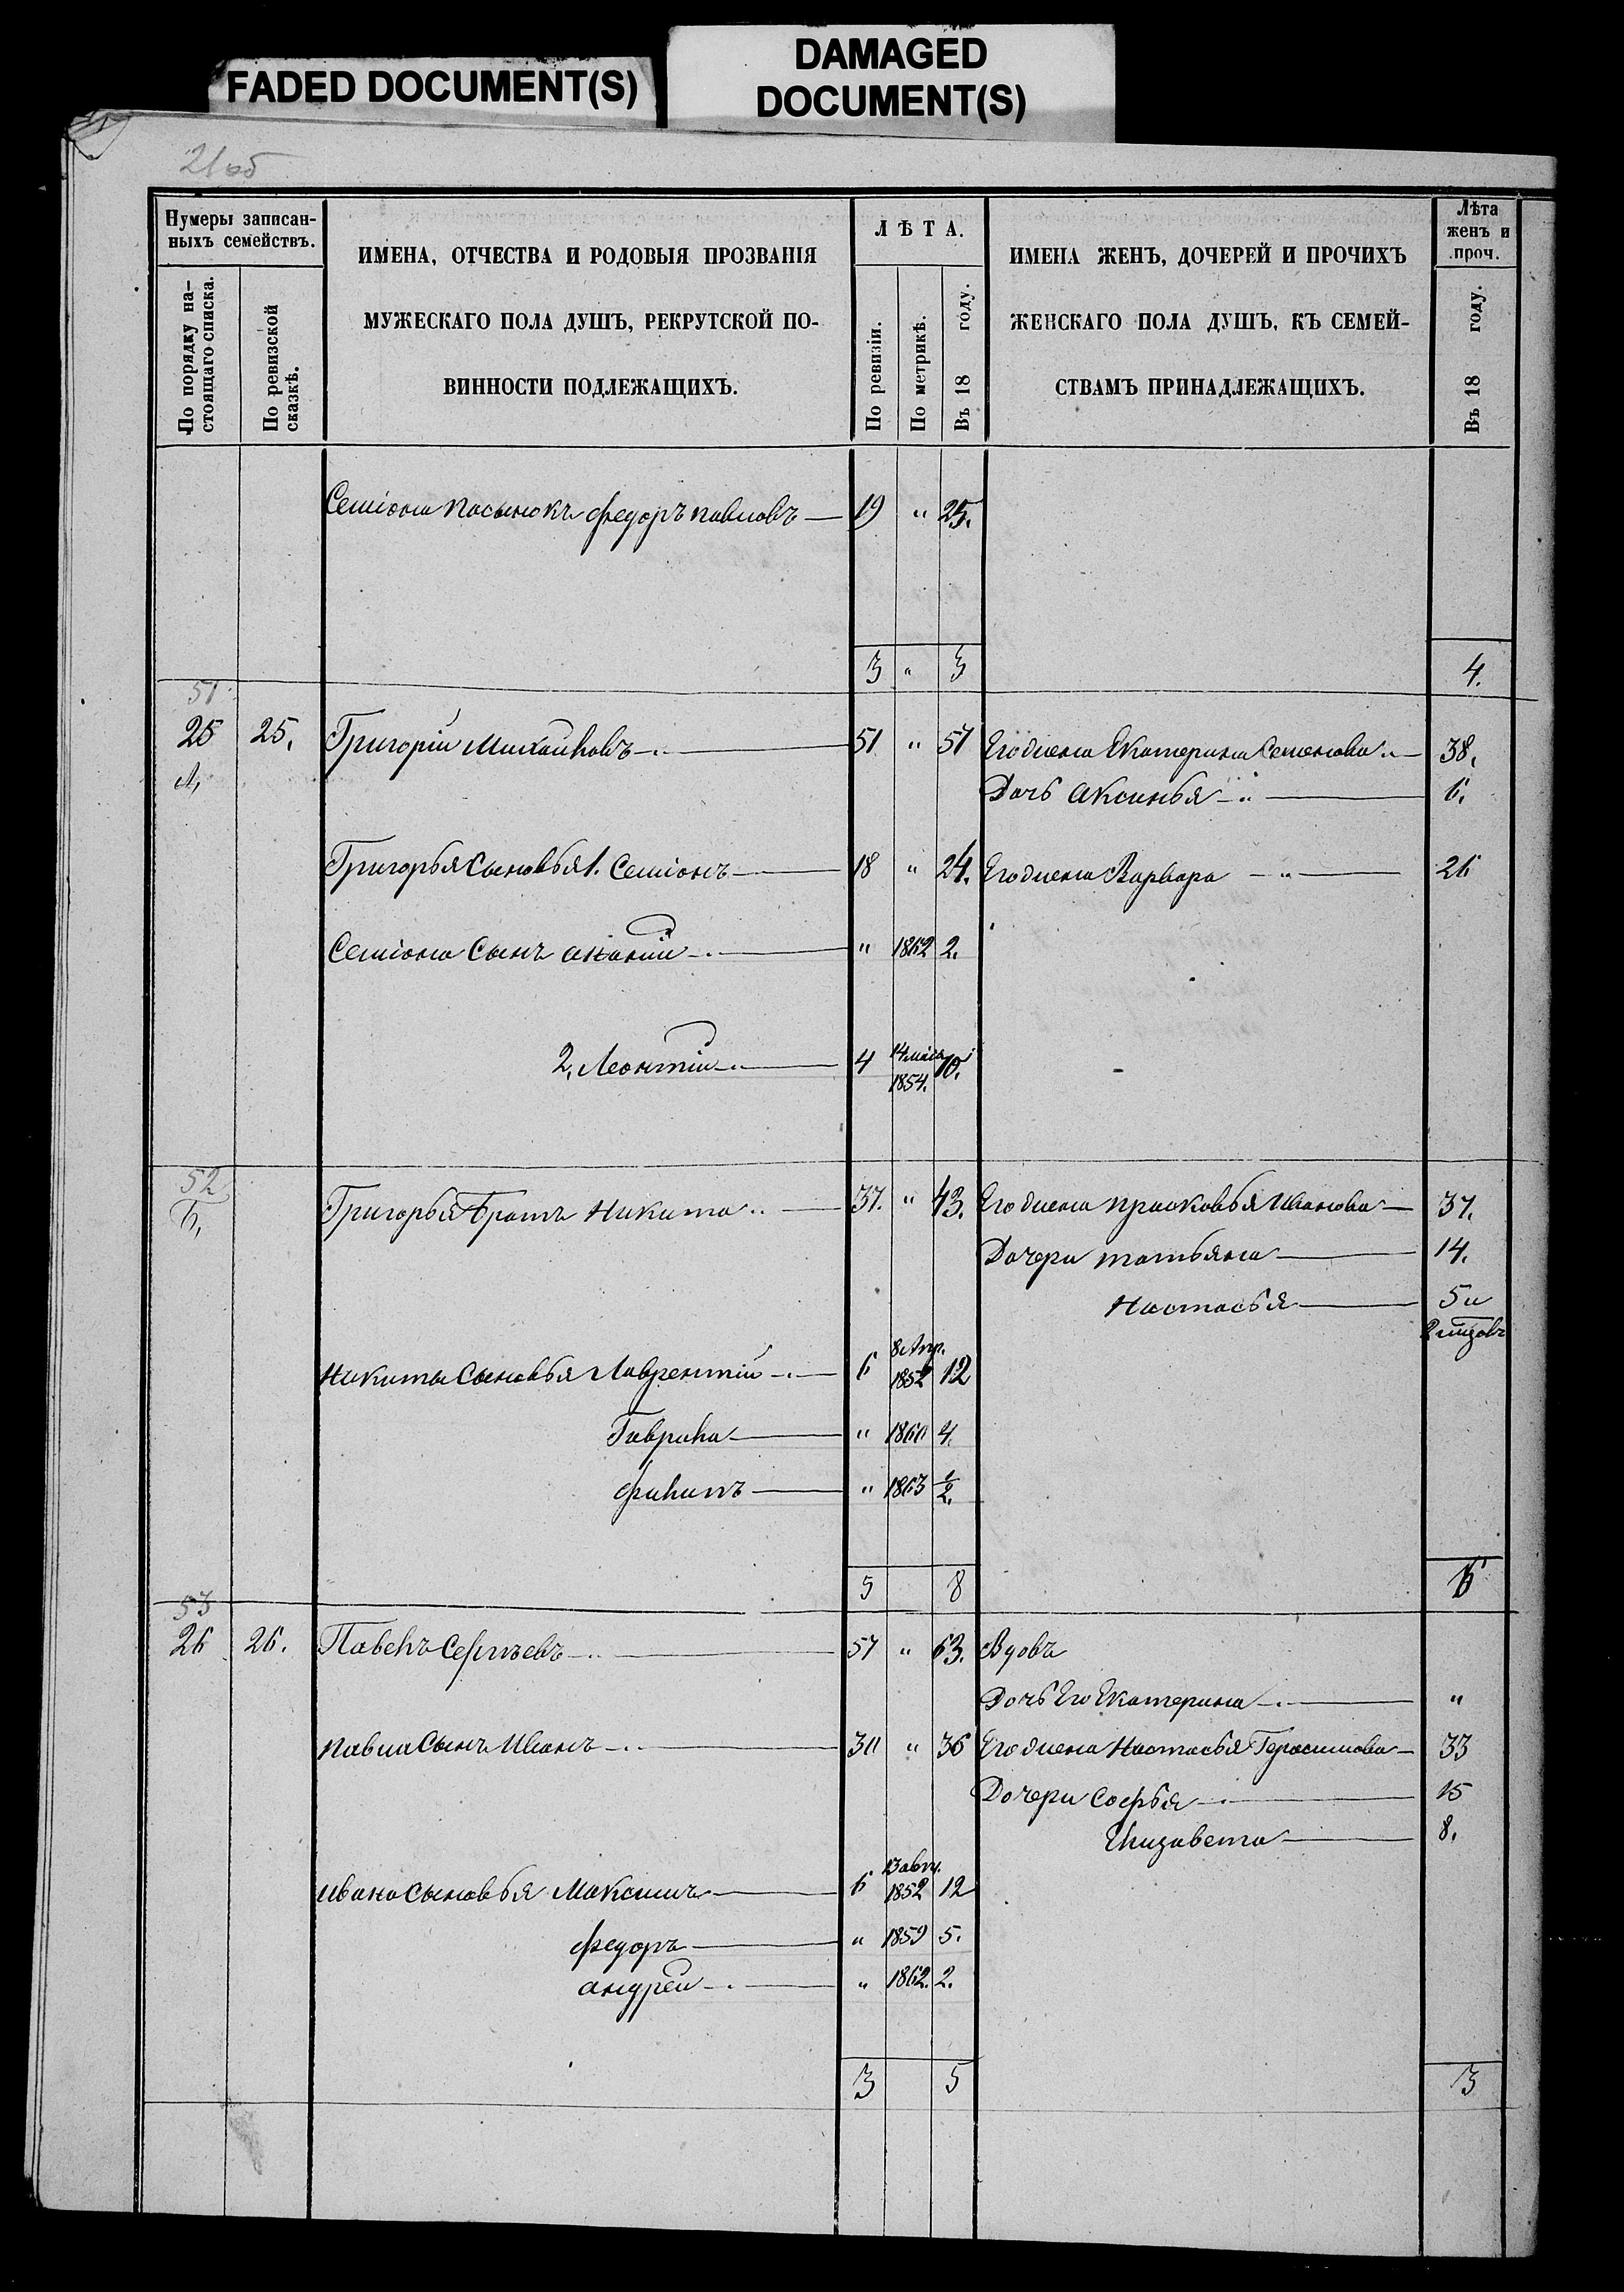 FADED DOCUMENT(S)
DAMAGED
DOCUMENT(S)
21об
Нумеры записан-
ныхъ семействъ.
По порядку на-
стоящаго списка.
По ревизской
сказкѣ.
ИМЕНА, ОТЧЕСТВА И РОДОВЫЯ ПРОЗВАНІЯ
МУЖЕСКАГО ПОЛА ДУШЪ, РЕКРУТСКОЙ ПО-
ВИННОСТИ ПОДЛЕЖАЩИХЪ.
ЛѢТА.
По ревизіи.
По метрикѣ.
Въ 18 году.
ИМЕНА ЖЕНЪ, ДОЧЕРЕЙ И ПРОЧИХЪ
ЖЕНСКАГО ПОЛА ДУШЪ, КЪ СЕМЕЙ-
СТВАМЪ ПРИНАДЛЕЖАЩИХЪ.
Лѣта
женъ и
проч.
Въ 18 году.
Семіона пасынокъ федоръ павловъ — 19 " 25.
3 " 3 4.
51
25 25. Григорій Михайловъ — 51 " 57 Его жена Екатерина Семенова — 38,
А, Дочь аксинья — 6.
Григорья сыновья 1. Семіонъ — 18 " 24. Его жена Варвара — " — 26
Семіона Сынъ ананій — " 1862 2.
2, Леонтій — 4 14 маія 1854. 10.
52
Б, Григорья братъ Никита — 37. " 43. Его жена прасковья Иванова — 37.
Дочери татьяна — 14.
Настасья — 5 и
Никиты Сыновья Лаврентій — 6 8 Апр. 1852 12
Гаврила — " 1860 4.
филипъ — " 1863 1/2.
5 8 6
53
26 26. Павелъ Сергѣевъ — 57 " 63. Вдовъ
Дочь Его Екатерина — "
павла Сынъ Иванъ — 30 " 36 Его жена Настасья Герасимова — 33
Дочери Софья — 15
Елизавета — 8.
ивана сыновья Максимъ — 6 13 авгу. 1852 12
федоръ — " 1859 5.
андрей — " 1862. 2.
3 5 3